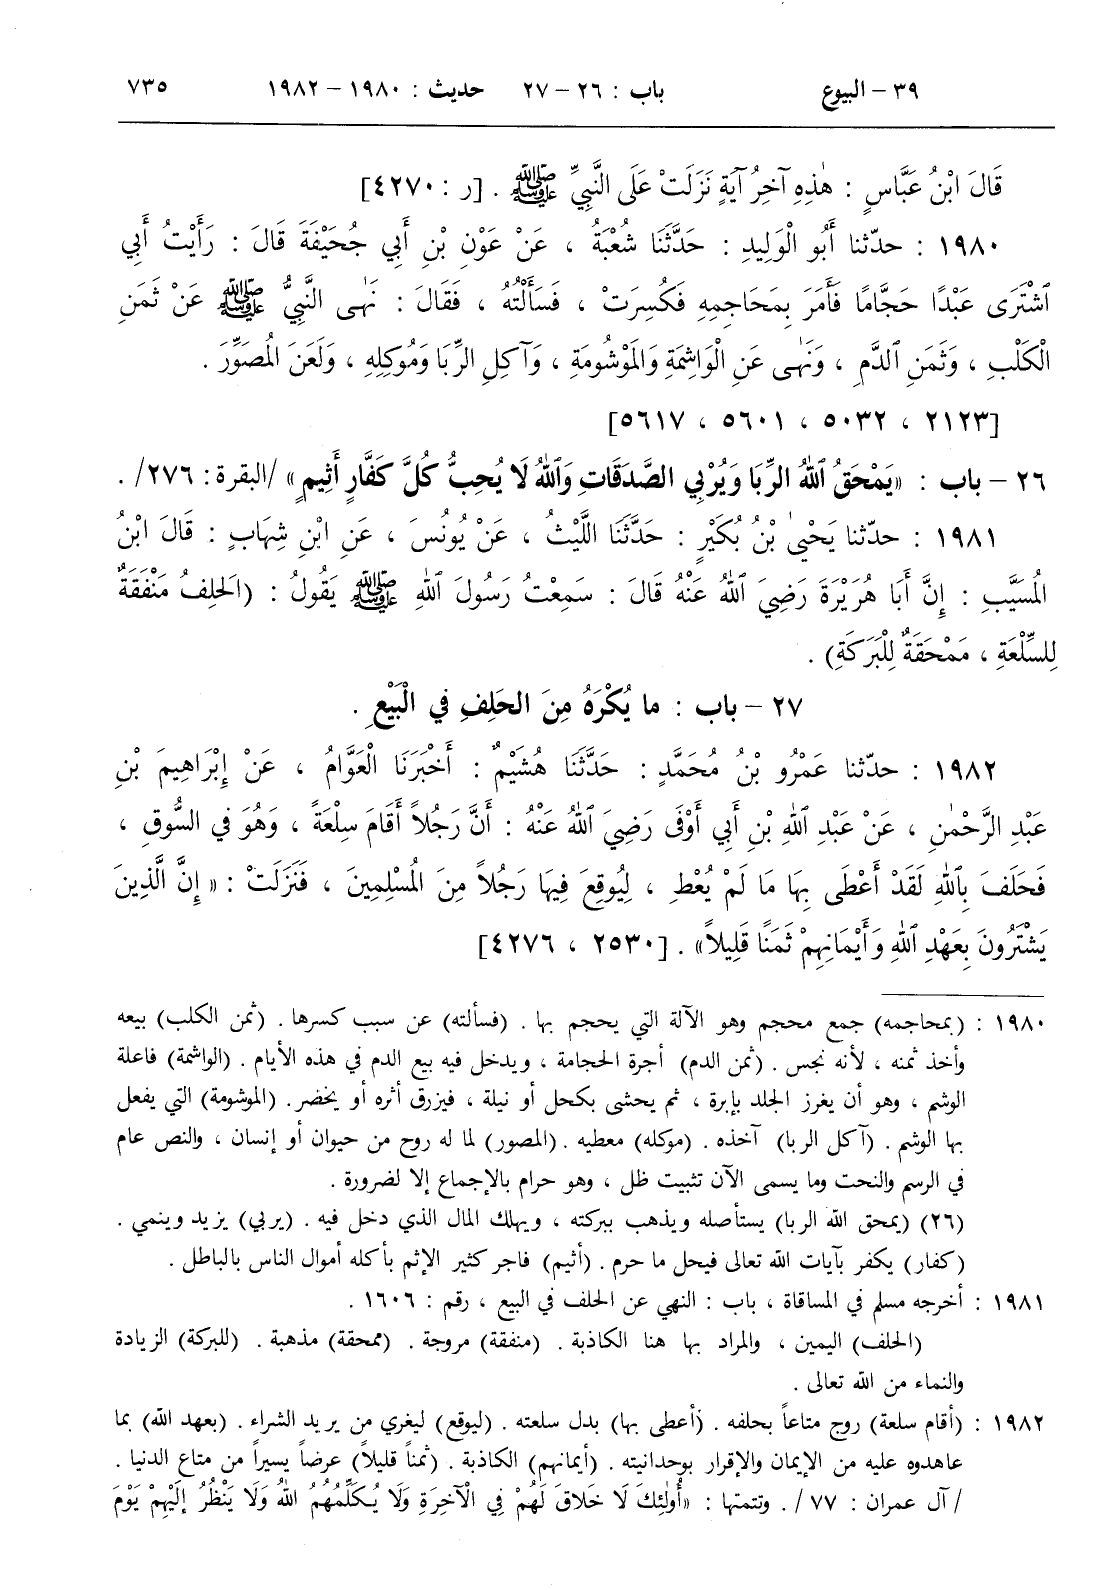 ٣٩ – البيوع باب : ٢٦ – ٢٧ حديث : ١٩٨٠ – ١٩٨٢ ٧٣٥
قَالَ ابْنُ عَبَّاسٍ : هٰذِهِ آخِرُ آيَةٍ نَزَلَتْ عَلَى النَّبِيِّ ﷺ . [ر : ٤٢٧٠]
١٩٨٠ : حدّثنا أَبُو الْوَلِيدِ : حَدَّثَنَا شُعْبَةُ ، عَنْ عَوْنِ بْنِ أَبِي جُحَيْفَةَ قَالَ : رَأَيْتُ أَبِي
ٱشْتَرَى عَبْدًا حَجَّامًا فَأَمَرَ بِمَحَاجِمِهِ فَكُسِرَتْ ، فَسَأَلْتُهُ ، فَقَالَ : نَهٰى النَّبِيُّ ﷺ عَنْ ثَمَنِ
الْكَلْبِ ، وَثَمَنِ ٱلدَّمِ ، وَنَهٰى عَنِ الْوَاشِمَةِ وَالْمَوْشُومَةِ ، وَآكِلِ الرِّبَا وَمُوكِلِهِ ، وَلَعَنَ الْمُصَوِّرَ .
[٢١٢٣ ، ٥٠٣٢ ، ٥٦٠١ ، ٥٦١٧]
٢٦ – باب : «يَمْحَقُ ٱللهُ الرِّبَا وَيُرْبِي الصَّدَقَاتِ وَٱللهُ لَا يُحِبُّ كُلَّ كَفَّارٍ أَثِيمٍ» /البقرة : ٢٧٦/ .
١٩٨١ : حدّثنا يَحْيىٰ بْنُ بُكَيْرٍ : حَدَّثَنَا اللَّيْثُ ، عَنْ يُونُسَ ، عَنِ ابْنِ شِهَابٍ : قَالَ ابْنُ
الْمُسَيَّبِ : إِنَّ أَبَا هُرَيْرَةَ رَضِيَ ٱللهُ عَنْهُ قَالَ : سَمِعْتُ رَسُولَ ٱللهِ ﷺ يَقُولُ : (الحَلِفُ مَنْفَقَةٌ
لِلسِّلْعَةِ ، مَمْحَقَةٌ لِلْبَرَكَةِ) .
٢٧ – باب : ما يُكْرَهُ مِنَ الحَلِفِ فِي الْبَيْعِ .
١٩٨٢ : حدّثنا عَمْرُو بْنُ مُحَمَّدٍ : حَدَّثَنَا هُشَيْمٌ : أَخْبَرَنَا الْعَوَّامُ ، عَنْ إِبْرَاهِيمَ بْنِ
عَبْدِ الرَّحْمٰنِ ، عَنْ عَبْدِ ٱللهِ بْنِ أَبِي أَوْفَى رَضِيَ ٱللهُ عَنْهُ : أَنَّ رَجُلاً أَقَامَ سِلْعَةً ، وَهُوَ فِي السُّوقِ ،
فَحَلَفَ بِٱللهِ لَقَدْ أَعْطَى بِهَا مَا لَمْ يُعْطِ ، لِيُوقِعَ فِيهَا رَجُلاً مِنَ الْمُسْلِمِينَ ، فَنَزَلَتْ : «إِنَّ الَّذِينَ
يَشْتَرُونَ بِعَهْدِ ٱللهِ وَأَيْمَانِهِمْ ثَمَنًا قَلِيلاً» . [٢٥٣٠ ، ٤٢٧٦]
١٩٨٠ : (بمحاجمه) جمع محجم وهو الآلة التي يحجم بها . (فسألته) عن سبب كسرها . (ثمن الكلب) بيعه
وأخذ ثمنه ، لأنه نجس . (ثمن الدم) أجرة الحجامة ، ويدخل فيه بيع الدم في هذه الأيام . (الواشمة) فاعلة
الوشم ، وهو أن يغرز الجلد بإبرة ، ثم يحشى بكحل أو نيلة ، فيزرق أثره أو يخضر . (الموشومة) التي يفعل
بها الوشم . (آكل الربا) آخذه . (موكله) معطيه . (المصور) لما له روح من حيوان أو إنسان ، والنص عام
في الرسم والنحت وما يسمى الآن تثبيت ظل ، وهو حرام بالإجماع إلا لضرورة .
(٢٦) (يمحق الله الربا) يستأصله ويذهب ببركته ، ويهلك المال الذي دخل فيه . (يربي) يزيد وينمي .
(كفار) يكفر بآيات الله تعالى فيحل ما حرم . (أثيم) فاجر كثير الإثم بأكله أموال الناس بالباطل .
١٩٨١ : أخرجه مسلم في المساقاة ، باب : النهي عن الحلف في البيع ، رقم : ١٦٠٦ .
(الحلف) اليمين ، والمراد بها هنا الكاذبة . (منفقة) مروجة . (ممحقة) مذهبة . (للبركة) الزيادة
والنماء من الله تعالى .
١٩٨٢ : (أقام سلعة) روج متاعاً بحلفه . (أعطى بها) بدل سلعته . (ليوقع) ليغري من يريد الشراء . (بعهد الله) بما
عاهدوه عليه من الإيمان والإقرار بوحدانيته . (أيمانهم) الكاذبة . (ثمناً قليلاً) عرضاً يسيراً من متاع الدنيا .
/آل عمران : ٧٧/ . وتتمتها : «أُولٰئِكَ لَا خَلَاقَ لَهُمْ فِي الْآخِرَةِ وَلَا يُكَلِّمُهُمُ اللهُ وَلَا يَنْظُرُ إِلَيْهِمْ يَوْمَ